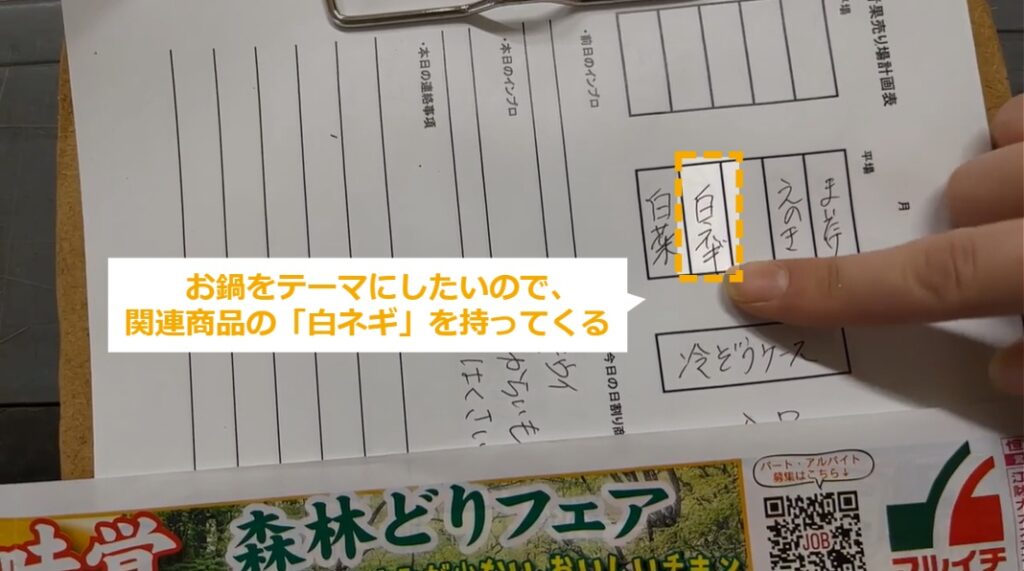 青果売り場計画表
月
平場
平場
まいたけ
えのき
白ネギ
白菜
冷ぞうケース
・前日のインプロ
・本日のインプロ
・本日の連絡事項
今日の日割り商
からいも
はくさい
お鍋をテーマにしたいので、
関連商品の「白ネギ」を持ってくる
味覚
森林どりフェア
パート・アルバイト
募集はこちら↓
JOB
マルイチ